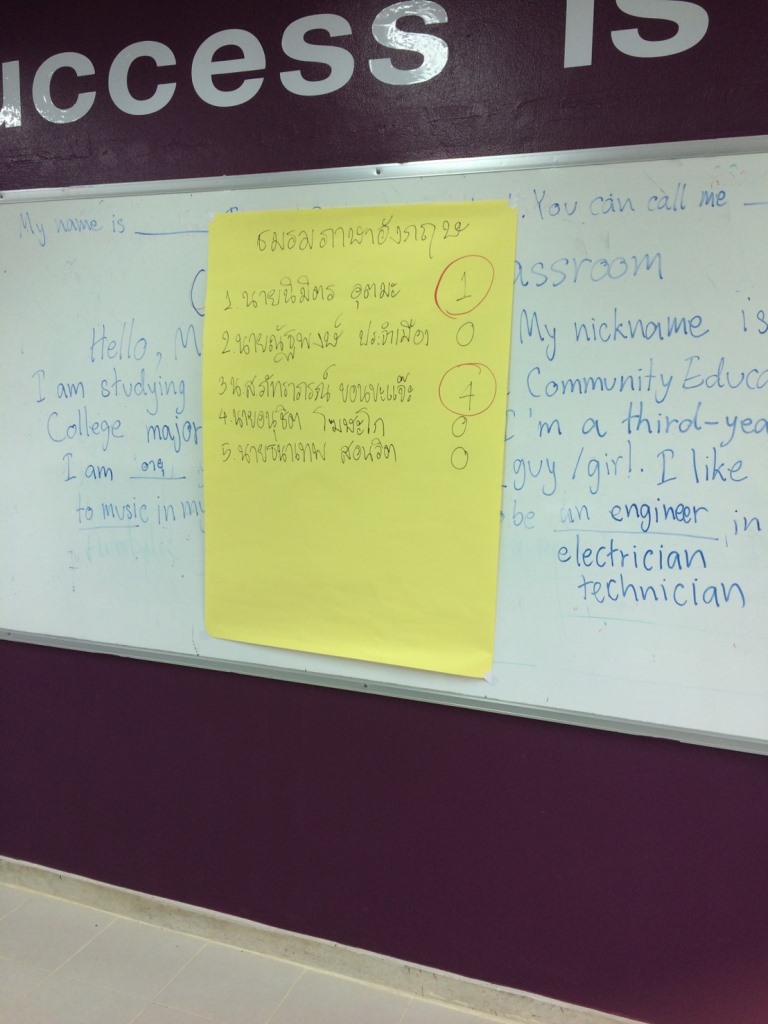 uccess is
My name is ______ You can call me
assroom
Hello, M My nickname is
I am studying Community Educa
College major I'm a third-yea
I am อายุ guy/girl. I like
to music in my be an engineer in
electrician
technician
ชมรมภาษาอังกฤษ
1. นายนิมิตร อุตมะ 1
2. นายณัฐพงษ์ ประจำเมือง 0
3. นส.ภัทราภรณ์ ขอนขะแจ๊ะ
4. นายอนุชิต 0
5. นายธนาเทพ สอนจิต 0